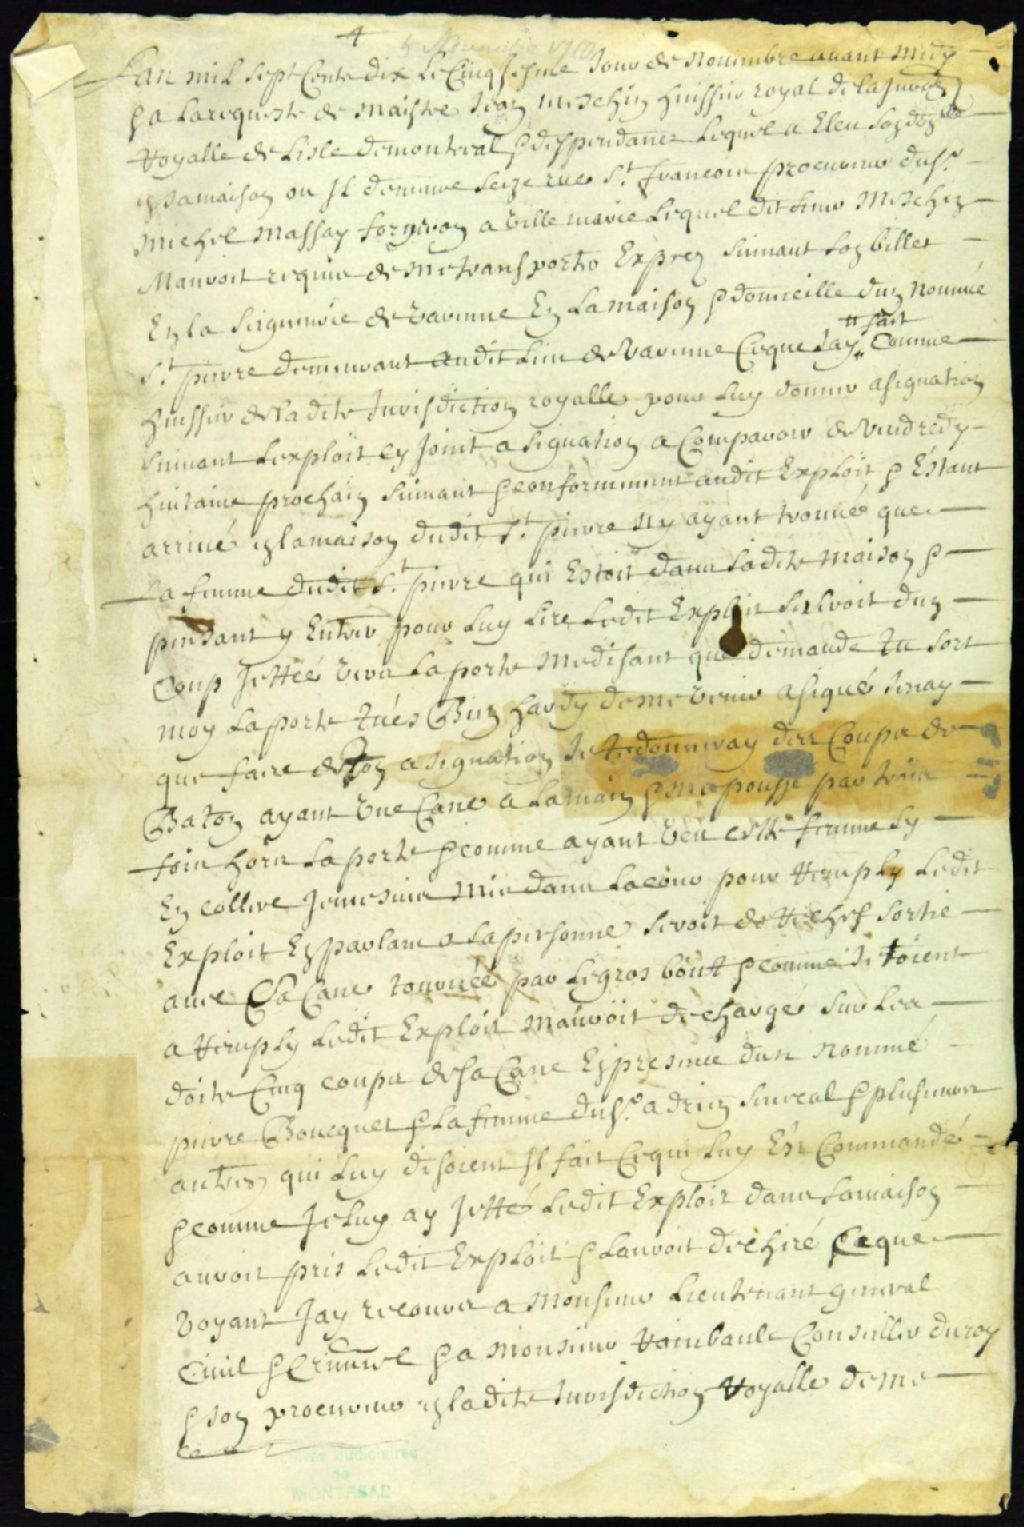 4
Lan mil sept Cents dix Le Cinqiesme Jour de Nouembre auant midy
& a La requeste de Maistre Jean Meschin huissier royal de la Jurison
royalle de Lisle de montreal & despendance Lequel a Eleu son domlle
en sa maison ou Il demeure seize rue St. francois procureur du Sr.
Michel Massay forgeron a Ville marie Lequel dit sieur Meschin
Mauroit requis de me transporter Exprez suiuant son billet
En la seigneurie de Varenne En La maison & domicille dun Nommé
St. pierre demeurant audit Lieu de Varenne Ceque Jay " Comme
" fait
huissier de Ladite Jurisdiction royalle pour Luy donner asignation
suiuant Lexploit cy Joint asignation a Comparoir de Vendredy
huitaine prochain suiuant & conformement audit Exploit & Estant
arriué en la maison dudit St. pierre ny ayant trouué que
La femme dudit St. pierre qui Estoit dans Ladite maison &
pendant y Entrer pour Luy Lire Ledit Exploit seseroit dun
Coup Jettée vers La porte me disant que demande tu sort
moy La porte tués Bien hardy de me venir asigné Je nay
que faire de ton asignation Je te donneray des Coups de
Baton ayant Une Cane a La main & ma pousse par trois
fois hors La porte & comme ayant Veu cette femme sy
En collere Je me suis Mis dans La cour pour remply Ledit
Exploit En parlant a sa personne seroit de rechef sortie
auec sa Cane tournée par Le gros bout & comme Je
a remply Ledit Exploit mauroit dechargé sur Les
doits Cinq coups de sa Cane En presence dun nommé
pierre Boucquet & La femme du Sr. adrien & plusieurs
autres qui Luy disoient Il fait Cequi Luy Est Commandé
& comme Je Luy ay Jetté Ledit Exploit dans La maison
auroit pris Ledit Exploit & Lauroit dechiré Ceque
Voyant Jay recours a Monsieur Lieutenant general
Ciuil & Criminel & a Monsieur raimbault Conseiller du roy
& son procureur en ladite Jurisdiction royalle de me
Archives Judiciaires
de
MONTREAL